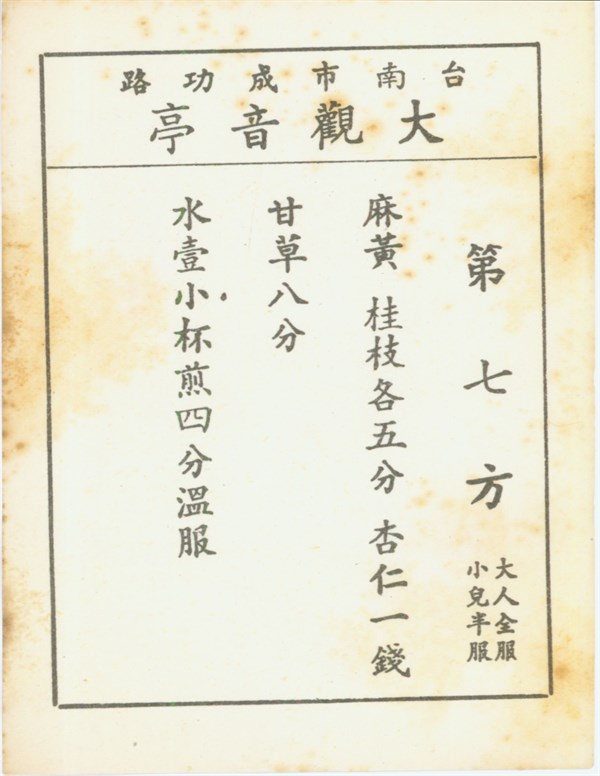 台南市成功路
大觀音亭
第七方
大人全服
小兒半服
麻黃 桂枝各五分 杏仁一錢
甘草八分
水壹小杯煎四分溫服